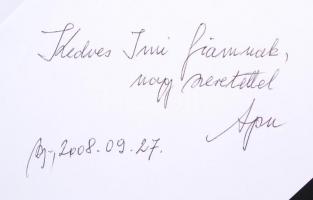 Kedves Imi fiamnak,
nagy szeretettel
Apu
Bp., 2008. 09. 27.